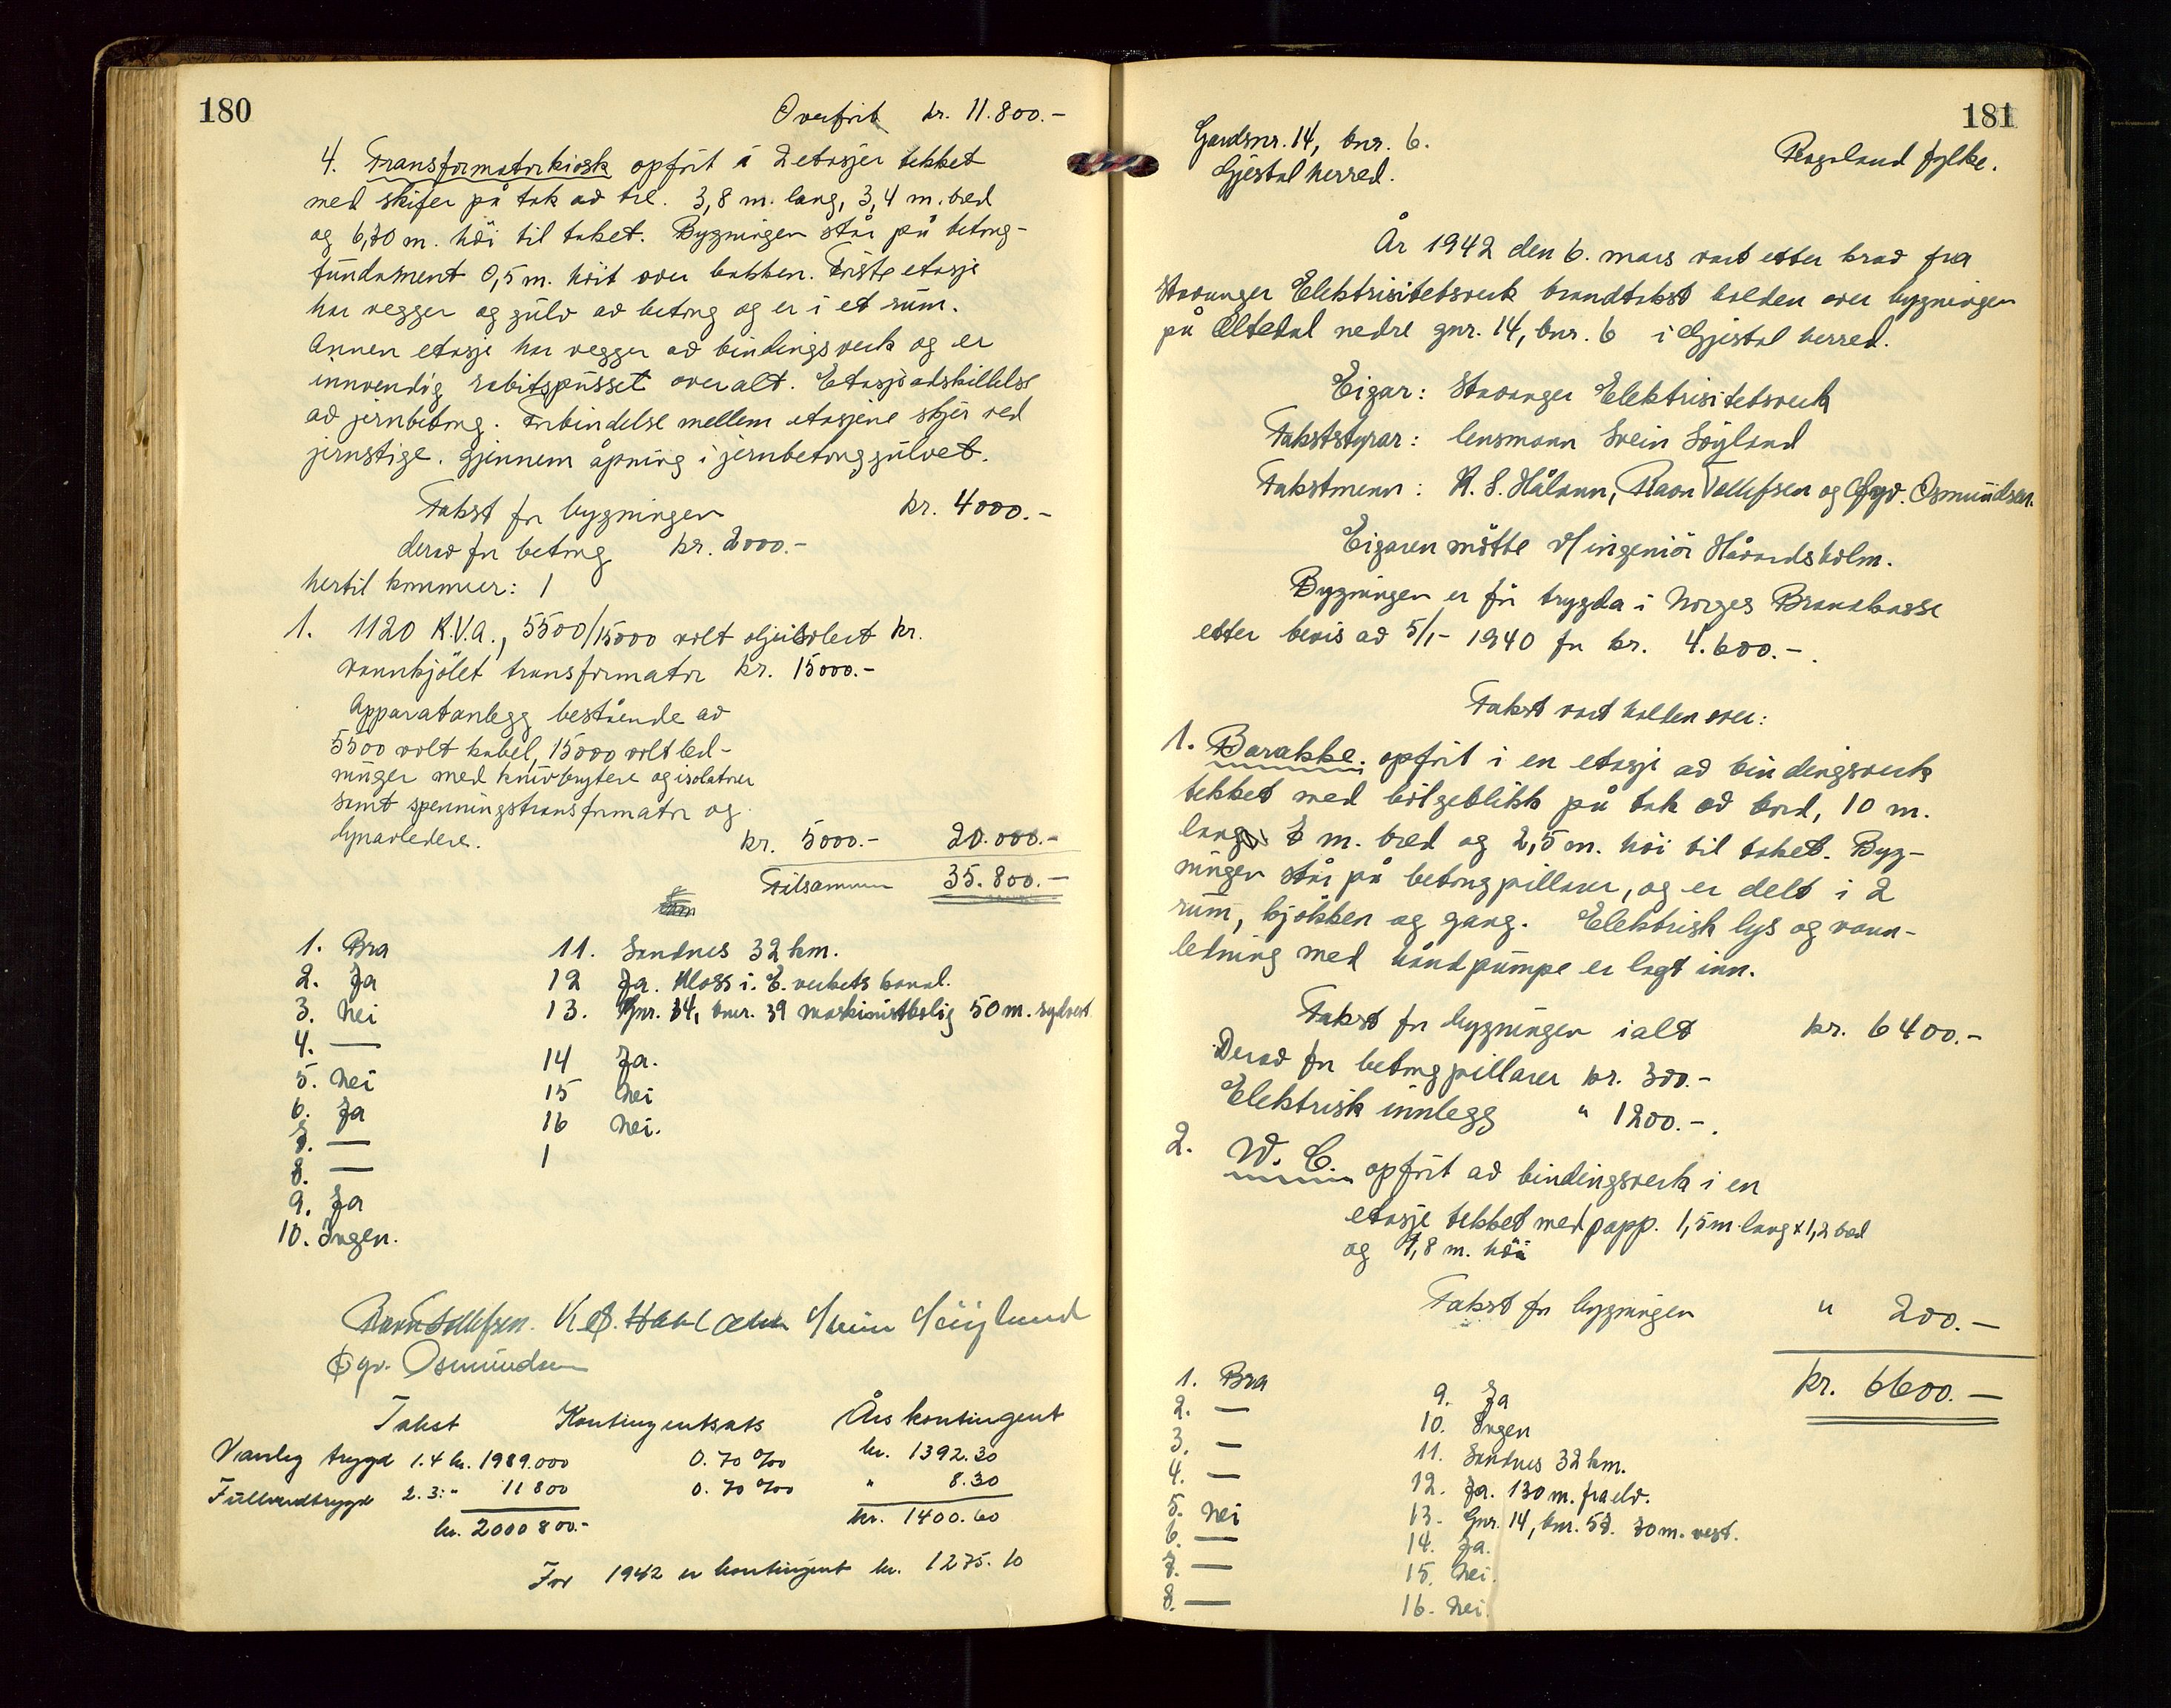 180
Overført kr. 11.800.-
4. Transformatorkiosk opført i 2 etasjer tekket
med skifer på tak av tre. 3,8 m. lang, 3,4 m. bred
og 6,70 m. høi til taket. Bygningen står på betong-
fundament 0,5 m. høit over bakken. Første etasje
har vegger og gulv av betong og er i et rum.
Annen etasje har vegger av bindingsverk og er
innvendig rabitspusset overalt. Etasjeadskillelse
av jernbetong. Forbindelse mellem etasjene skjer ved
jernstige. gjennem åpning i jernbetonggulvet.
Takst for bygningen kr. 4000.-
derav for betong kr. 2000.-
hertil kommer:
1. 1120 K.V.A., 5500/15000 volt oljeisolert kr.
vannkjölet transformator kr. 15000.-
Apparatanlegg bestående av
5500 volt kabel, 15000 volt led-
ninger med knivbrytere og isolatorer
samt spenningstransformator og
lynavledere. kr. 5000.- 20.000.-
Tilsammen 35.800.-
1. Bra 11. Sandnes 32 km.
2. Ja 12 Ja. Kloss i. E. verkets kanal.
3. Nei 13. Gnr. 34, bnr. 39 maskinistbolig 50 m. sydvest
4. — 14 Ja.
5. Nei 15 Nei
6. Ja 16 Nei.
7. —
8. —
9. Ja
10. Ingen.
Ravn Tollefsen. K. S. Håland Svein Söyland
Gyv. Osmundsen
Takst Kontingentsats Års kontingent
Vanleg trygd 1.4 kr. 1989.000 0.70 ‰ kr. 1392.30
Fullverdtrygd 2.3: " 11800 0.70 ‰ " 8.30
kr. 2000800.- kr. 1400.60
For 1942 er kontingent kr. 1275.10
181
Gardsnr. 14, bnr. 6.
Gjestal herred.
Rogaland fylke.
År 1942 den 6. mars vart etter krav fra
Stavanger Elektrisitetsverk brandtakst holden over bygningen
på Oltedal nedre gnr. 14, bnr. 6 i Gjestal herred.
Eigar: Stavanger Elektrisitetsverk
Takststyrar: lensmann Svein Söyland
Takstmenn: K. S. Håland, Ravn Tollefsen og Gyv. Osmundsen.
Eigaren mötte v/ ingeniör Håvardsholm.
Bygningen er för trygda i Norges Brannkasse
etter bevis av 5/1- 1940 for kr. 4.600.-.
Takst vart holden over:
1. Barakke. opført i en etasje av bindingsverk
tekket med bölgeblikk på tak av bord, 10 m.
lang 7 m. bred og 2,5 m. høi til taket. Byg-
ningen står på betongpillarer, og er delt i 2
rum, kjökken og gang. Elektrisk lys og vann-
ledning med håndpumpe er lagt inn.
Takst for bygningen ialt kr. 6400.-
Derav for betongpillarer kr. 300.-
Elektrisk innlegg " 1200.-.
2. W. C. opført av bindingsverk i en
etasje tekket med papp. 1,5 m. lang x 1,2 bred
og 1,8 m. höi
Takst for bygningen " 200.-
kr. 6600.-
1. Bra 9. Ja
2. — 10. Ingen
3. — 11. Sandnes 32 km.
4. — 12. Ja. 130 m. fra elv.
5. Nei 13. Gnr. 14, bnr. 57. 70 m. vest.
6. — 14. Ja.
7. — 15. Nei.
8. — 16. Nei.